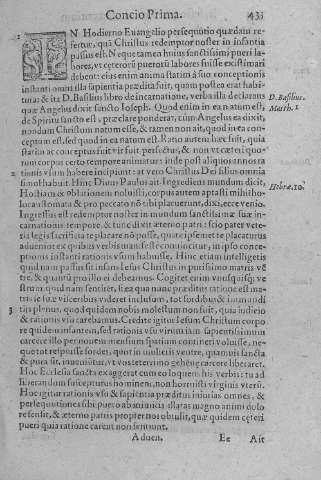 Concio Prima. 433
1 IN Hodierno Euangelio persequutio quædam refertur,
quã Christus redemptor noster in infantia
passus est. Neque tamen huius sanctissimi pueri labores,
vt cęterorũ puerorũ labores fuisse existimari
debent: eius enim anima statim á suo conceptionis
instanti omni illa sapientia prædita fuit, quam postea erat habitura:
& ita D. Basilius libro de incarnatione, verba illa declarans
quæ Angelus dixit sancto Ioseph. Quod enim in ea natum est,
de Spiritu sancto est, præclare ponderat, cùm Angelus ea dixit,
nondum Christum natum esse, & tamen non ait, quod in ea conceptum
est, sed quod in ea natum est. Ratio autem hæc fuit, quia
statim ac conceptus fuit vir fuit perfectus, & non vt cæteri quorum
corpus certo tempore animatur: inde post aliquos annos rationis
vsum habere incipiunt: at vero Christus Dei filius omnia
simol habuit. Hinc Diuus Paulus ait. Ingrediens mundum dicit,
Hostiam & oblationem noluisti, corpus autem aptasti mihi: holocautomata
& pro peccato nõ tibi placuerunt, dixi, ecce venio.
Ingressus est redemptor noster in mundum sanctissimæ suæ incarnationis
tempore, & tunc dixit æterno patri: scio pater veteris
legis sacrificia te placare nõ posse, quare ipsemet te placaturus
aduenio: ex quibus verbis manifeste conuincitur, in ipso conceptionis
instanti rationis vsum habuisse. Hinc etiam intelligetis
quid nam passus sit infans Iesus Christus in purissimo matris vẽtre,
& quantũ pro illo ei debeamus. Cogitet enim vnusquisq; vestrum,
quid nam sentiret, si ea qua nunc præditus ratione est matris
suæ visceribus videret inclusum, tot sordibus & immunditiis
plenus, quod quidem nobis molestum non fuit, quia iudicio
3 & rationis via carebamus. Credite igitur Iesum, Christum corpore
quidem infantem, sed rationis vsu virum iam sapientissimum
carcere illo per nouem mensium spatium contineri voluisse, neque
tot relpuisse sordes, quot in mulieris ventre, quamuis sancta
& pura sit, inueniũtur, vt vos teterrimo gehẽnę carcere liberaret.
Hoc Ecclesia sancta exaggerat cum eo loquens his verbis: tu ad
liberandum suscepturus hominem, non horruisti virginis vterũ.
Hoc igitur rationis vsu & sapientia præditus iniurias omnes, &
persequutiones sibi puero ab inimicis illatas magno animi dolo
re sensit, & æterno patris propter nos obtulit, quæ quidem cęteri
pueri quia ratione carent non sentiunt.
Aduen. Ee Ait
D. Basilius.
Matth. 1
Hebræ. 10